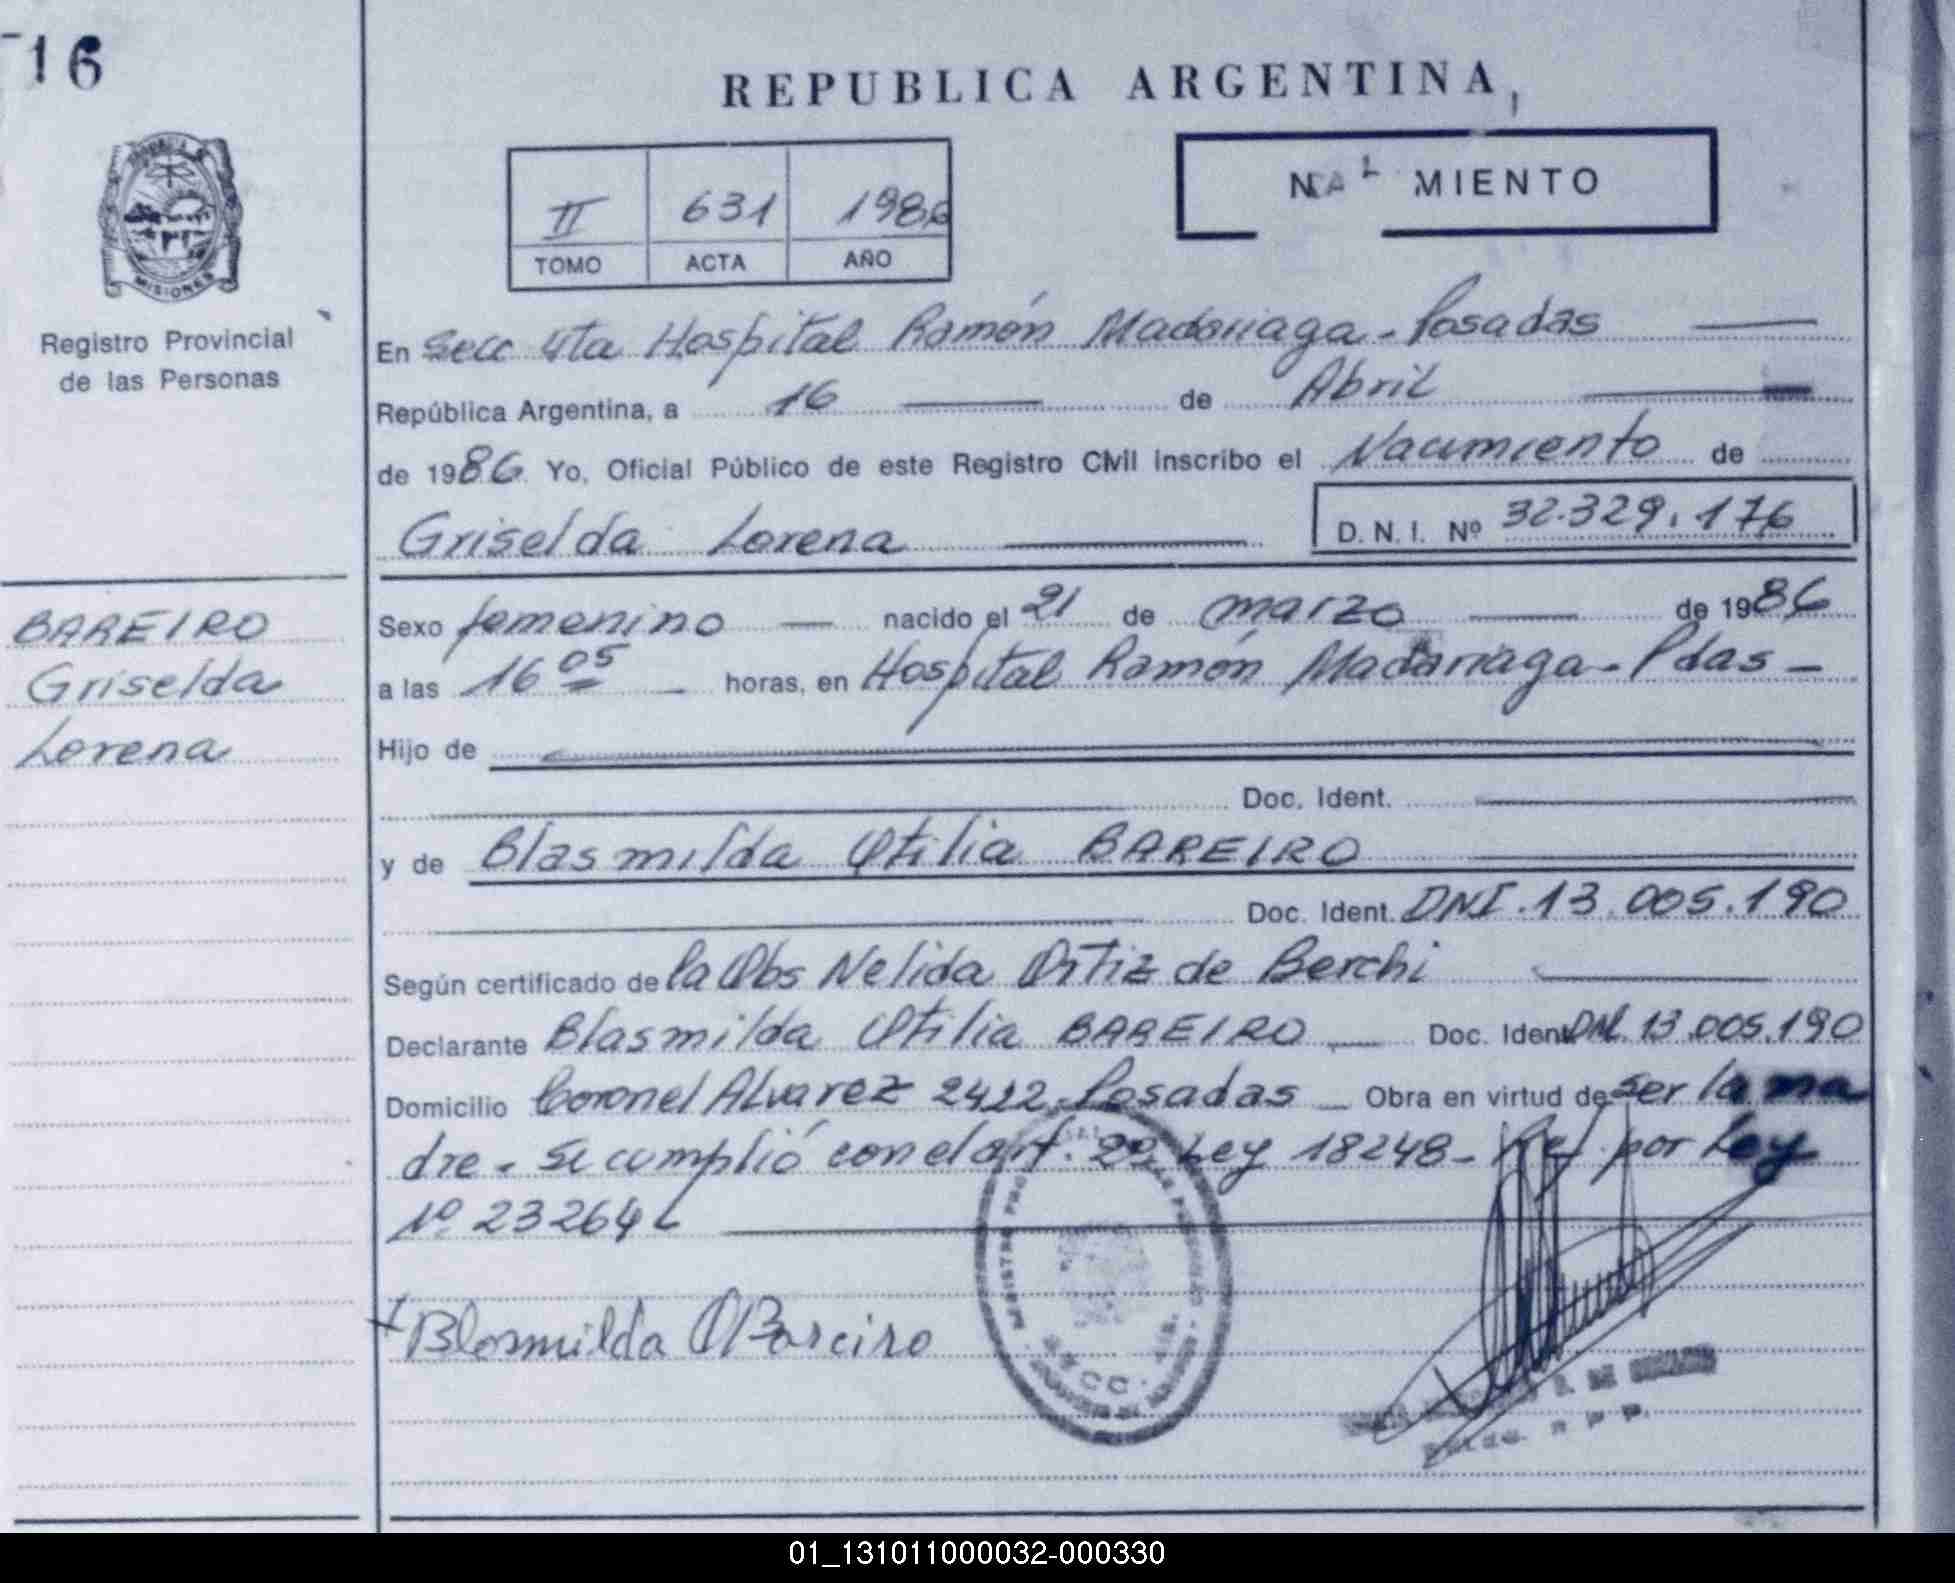 16
REPUBLICA ARGENTINA
II 631 1986
TOMO ACTA AÑO
MIENTO
MISIONES
Registro Provincial
de las Personas
En Secc 4ta Hospital Ramón Madariaga - Posadas
República Argentina, a 16 de Abril
de 1986 Yo, Oficial Público de este Registro Civil inscribo el Nacimiento de
Griselda Lorena D. N. I. Nº 32.329.176
BAREIRO
Griselda
Lorena
Sexo femenino nacido el 21 de marzo de 1986
a las 16 05 horas, en Hospital Ramón Madariaga - Pdas -
Hijo de
Doc. Ident.
y de Blasmilda Otilia BAREIRO
Doc. Ident. DNI. 13.005.190
Según certificado de la Obs Nelida Ortiz de Berchi
Declarante Blasmilda Otilia BAREIRO Doc. Ident DNI. 13.005.190
Domicilio Coronel Alvarez 2422 - Posadas Obra en virtud de ser la ma
dre - Se cumplió con el art. 2º Ley 18248 - Ref. por Ley
Nº 23264
Blasmilda O Bareiro
01_131011000032-000330